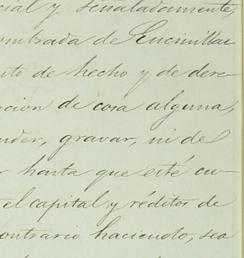 cial y señaladamente
ombrada de Lucinillas
nto de hecho y de dere
ucion de cosa alguna,
nder, gravar, ni de
r hasta que esté cu
el capital y réditos de
contrario haciendo, sea